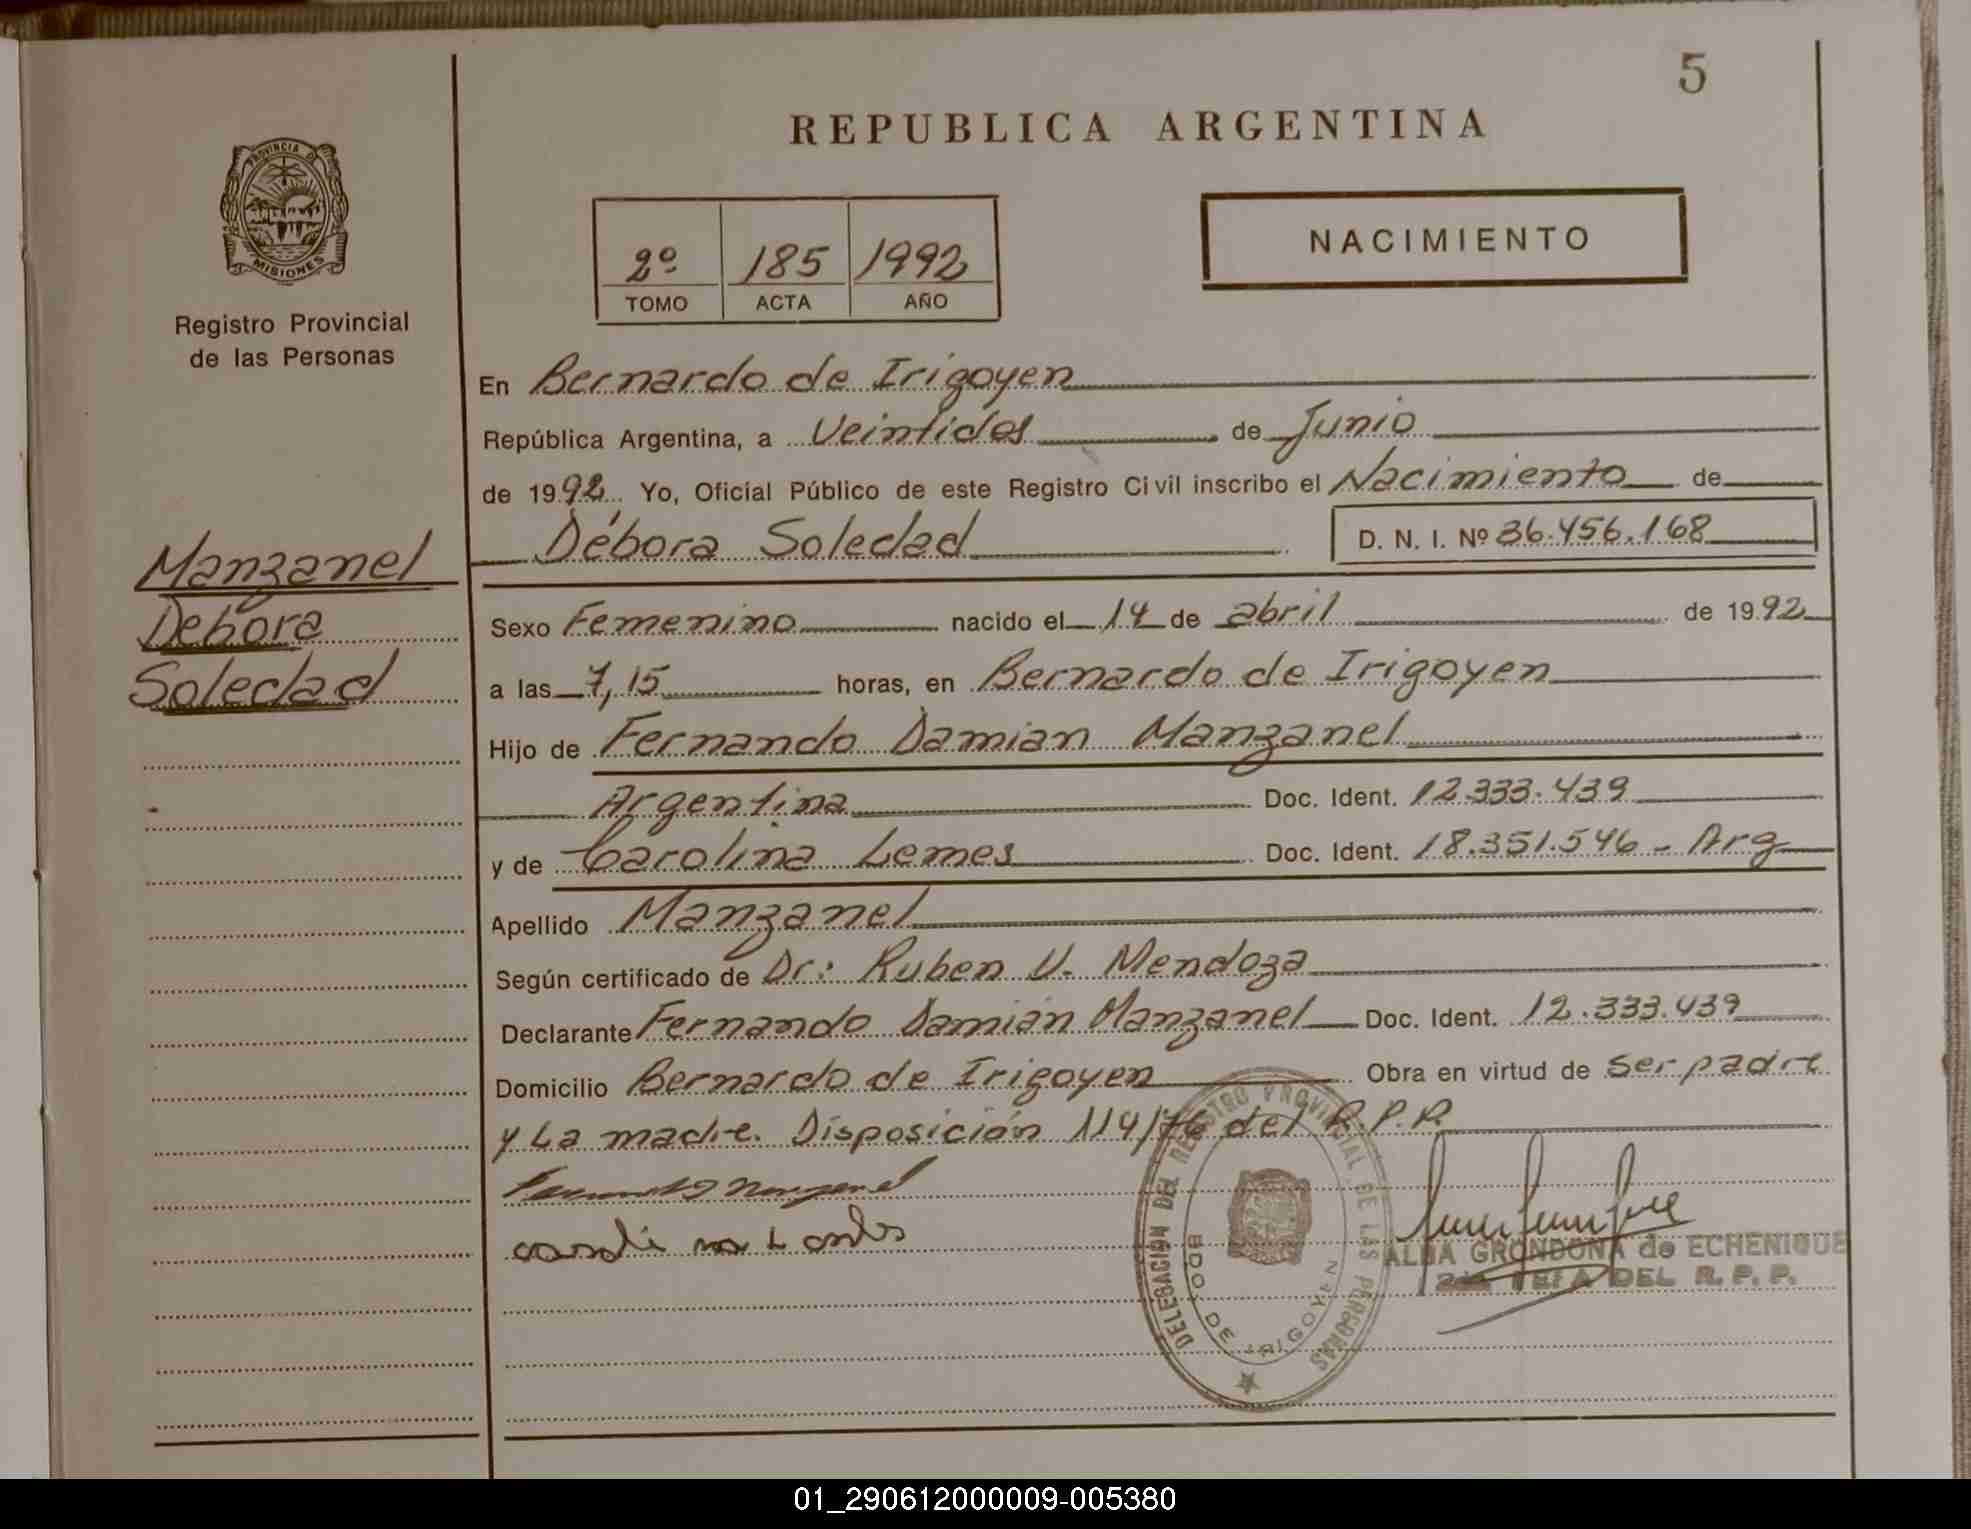 5
REPUBLICA ARGENTINA
PROVINCIA DE
MISIONES
Registro Provincial
de las Personas
2º 185 1992
TOMO ACTA AÑO
NACIMIENTO
En Bernardo de Irigoyen
República Argentina, a Veintidos de Junio
de 1992 Yo, Oficial Público de este Registro Civil inscribo el Nacimiento de
Débora Soledad D. N. I. Nº 36.456.168
Manzanel
Debora
Soledad
Sexo Femenino nacido el 14 de abril de 1992
a las 7,15 horas, en Bernardo de Irigoyen
Hijo de Fernando Damian Manzanel
Argentina Doc. Ident. 12.333.439
y de Carolina Lemes Doc. Ident. 18.351.546 - Arg
Apellido Manzanel
Según certificado de Dr: Ruben V. Mendoza
Declarante Fernando Damián Manzanel Doc. Ident. 12.333.439
Domicilio Bernardo de Irigoyen Obra en virtud de ser padre
y La madre. Disposición 114/76 del R.P.P.
DELEGACION DEL REGISTRO PROVINCIAL DE LAS PERSONAS
BDO. DE IRIGOYEN
ALBA GRONDONA de ECHENIQUE
JEFA DEL R. P. P.
01_290612000009-005380